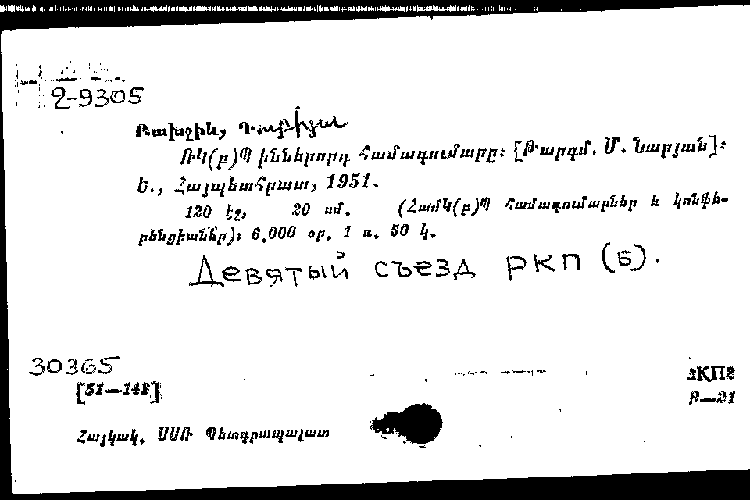 2-9305
ՌԿ(բ)Պ իններորդ համագումարը: [Թարգմ. Մ. Նարյան]:
Ե., Հայպետհրատ, 1951.
120 էջ, 20 սմ. (ՀամԿ(բ)Պ համագումարներ և կոնֆե-
րենցիաներ): 6.000 օր. 1 ռ. 50 կ.
Девятый съезд РКП (б).
30365
[51—148]
3КП2
Հայկակ. ՍՍՌ Պետգրապալատ